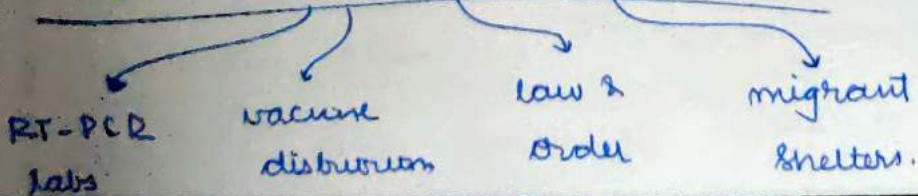 RT-PCR
labs
vaccine
disbursion
law &
order
migrant
shelters.